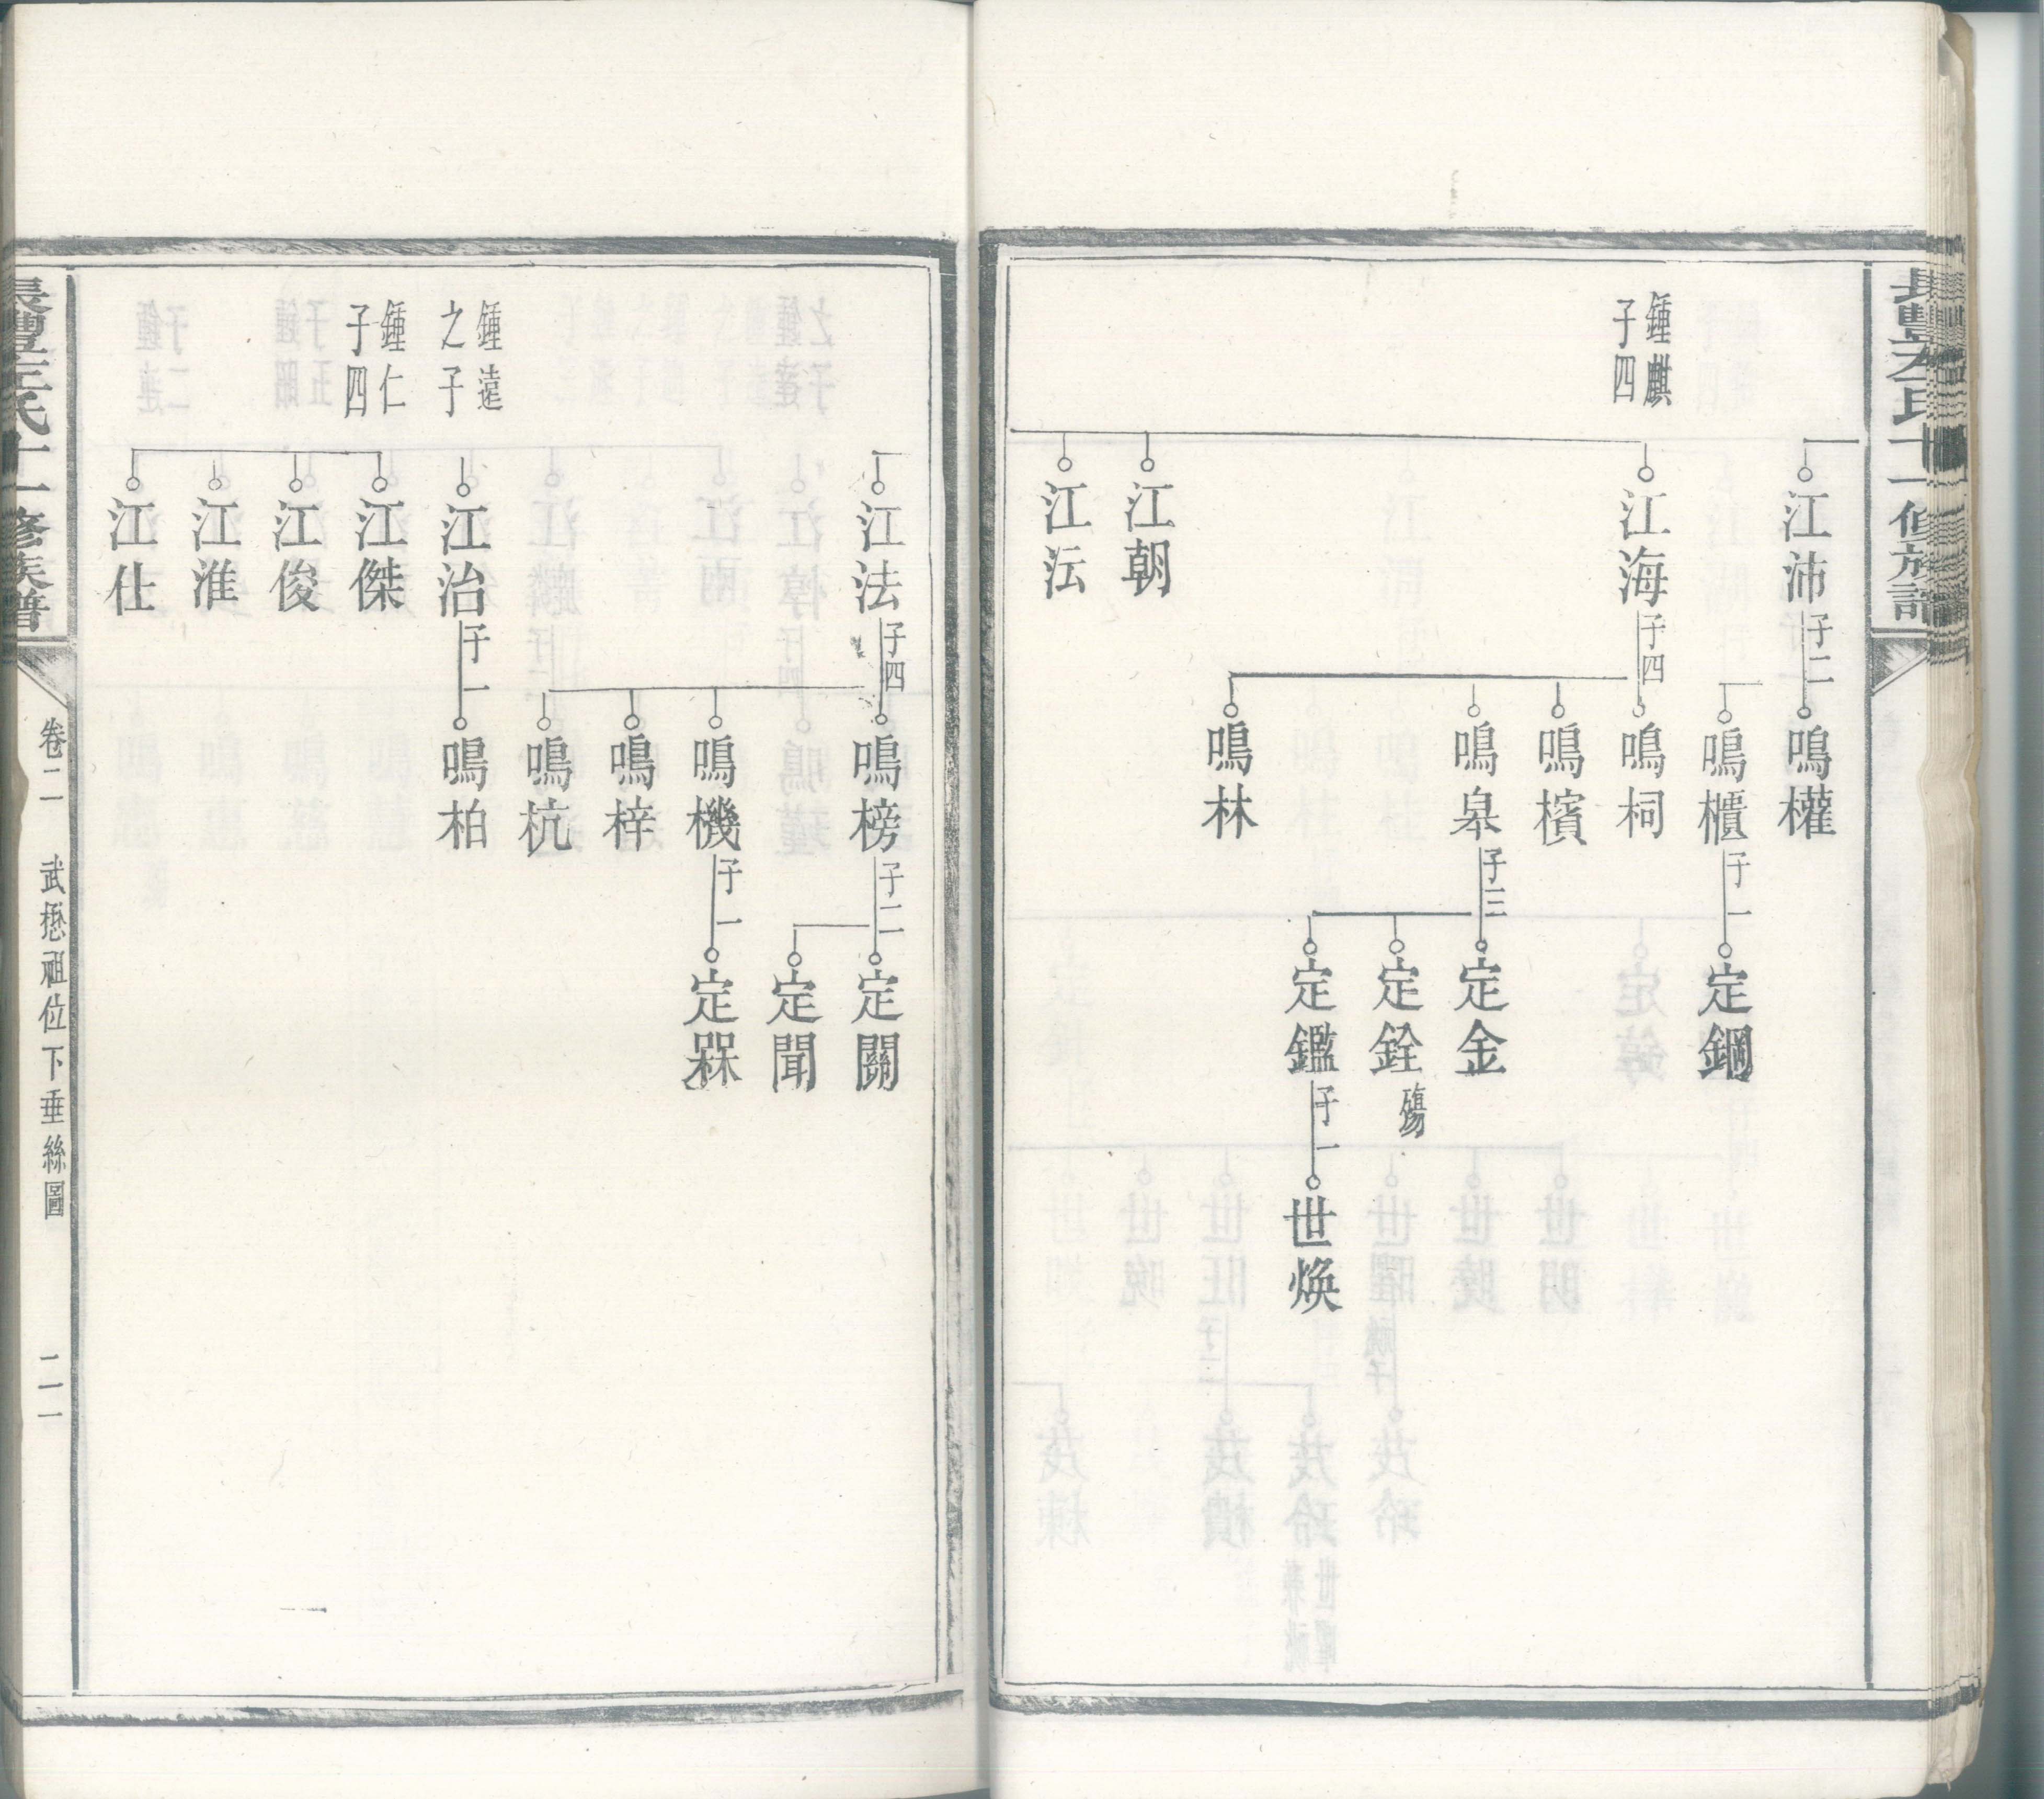 鍾麒
子四
江沛
子二
江海
子四
江朝
江沄
鳴權
鳴櫃
子一
鳴柌
鳴檳
鳴皋
子三
鳴林
定鋼
定金
定銓
殤
定鑑
子一
世煥
鍾遠
之子
鍾仁
子四
江法
子四
江治
子一
江傑
江俊
江淮
江仕
鳴榜
子二
鳴機
子一
鳴梓
鳴杭
鳴柏
定關
定聞
定槑
氏十一修族譜
卷二
武懋祖位下垂絲圖